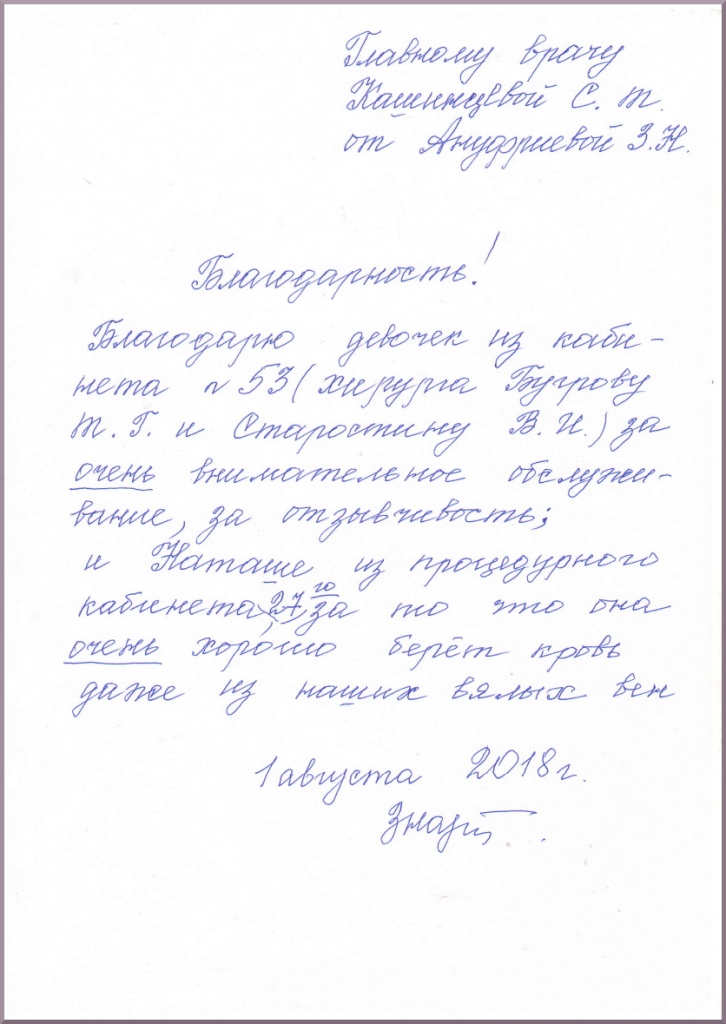 Главному врачу
Кашинцевой С. Т.
от Ануфриевой З.Н.
Благодарность!
Благодарю девочек из каби-
нета N 53 (хирурга Бугрову
Т. Г. и Старостину В. И.) за
очень внимательное обслужи-
вание, за отзывчивость;
и Наташе из процедурного
кабинета 27го за то что она
очень хорошо берёт кровь
даже из наших вялых вен
1 августа 2018г.